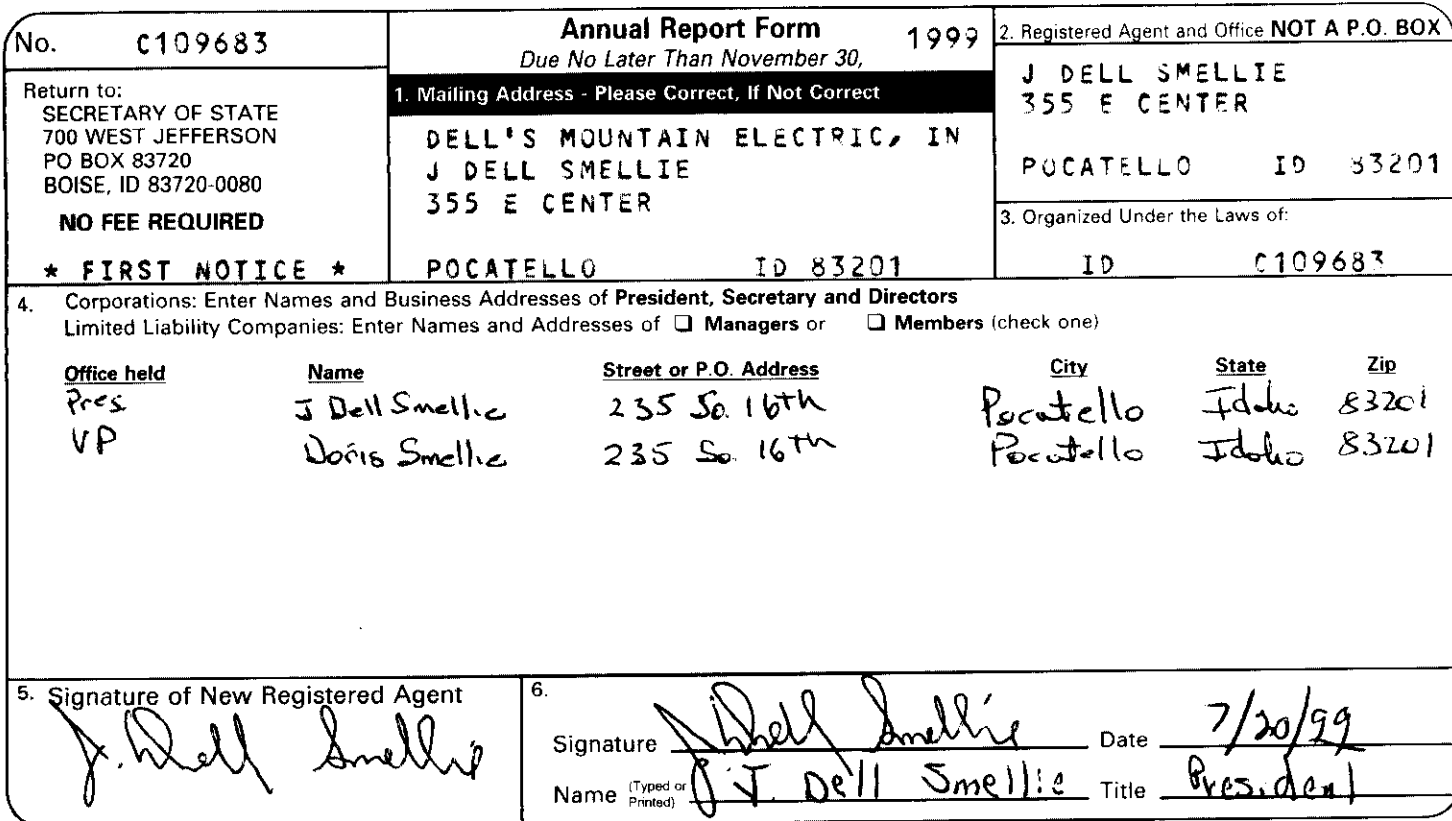 No. C109683
Return to:
SECRETARY OF STATE
700 WEST JEFFERSON
PO BOX 83720
BOISE, ID 83720-0080
NO FEE REQUIRED
* FIRST NOTICE *
Annual Report Form 1999
Due No Later Than November 30,
1. Mailing Address - Please Correct, If Not Correct
DELL'S MOUNTAIN ELECTRIC, IN
J DELL SMELLIE
355 E CENTER
POCATELLO ID 83201
2. Registered Agent and Office NOT A P.O. BOX
J DELL SMELLIE
355 E CENTER
POCATELLO ID 83201
3. Organized Under the Laws of:
ID C109683
4. Corporations: Enter Names and Business Addresses of President, Secretary and Directors
Limited Liability Companies: Enter Names and Addresses of ❑ Managers or ❑ Members (check one)
Office held Name Street or P.O. Address City State Zip
Pres J Dell Smellie 235 So. 16th Pocatello Idaho 83201
VP Doris Smellie 235 So. 16th Pocatello Idaho 83201
5. Signature of New Registered Agent
J. Dell Smellie
6.
Signature J. Dell Smellie Date 7/20/99
Name (Typed or Printed) J. Dell Smellie Title President